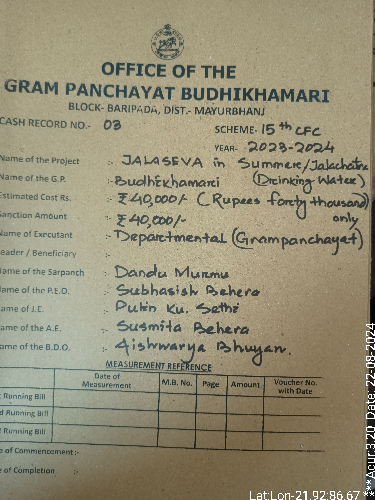 OFFICE OF THE
GRAM PANCHAYAT BUDHIKHAMARI
BLOCK- BARIPADA, DIST.- MAYURBHANJ
CASH RECORD NO.- 03
SCHEME- 15th CFC
YEAR- 2023-2024
Name of the Project :- JALASEVA in Summer/Jalachatra
(Drinking Water)
Name of the G.P. :- Budhikhamari
Estimated Cost Rs. :- ₹40,000/- (Rupees forty thousand)
only
Sanction Amount :- ₹40,000/-
Name of Executant :- Departmental (Grampanchayat)
Leader / Beneficiary :-
Name of the Sarpanch :- Dandu Murmu
Name of the P.E.O. :- Subhasish Behera
Name of J.E. :- Pukin Ku. Sethi
Name of the A.E. :- Susmita Behera
Name of the B.D.O. :- Aishwarya Bhuyan.
MEASUREMENT REFERENCE
Date of Measurement M.B. No. Page Amount Voucher No. with Date
Running Bill
Running Bill
Running Bill
of Commencement :-
of Completion :-
Lat:Lon-21.92:86.67
***Acur:3.20 Date: 22-08-2024